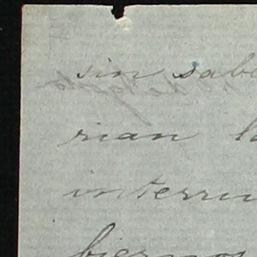 sin sabe
rian la
interru
biernos